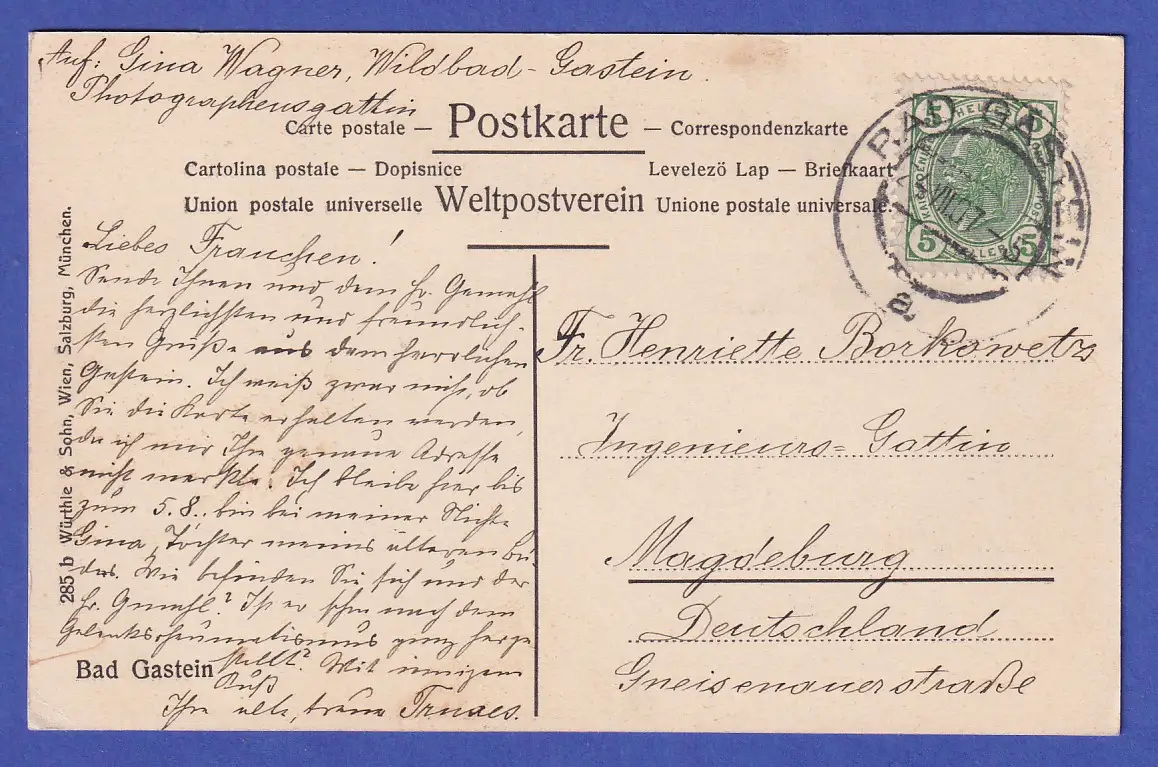 Auf: Gina Wagner, Wildbad-Gastein.
Photographensgattin
Postkarte
Carte postale — — Correspondenzkarte
Cartolina postale — Dopisnice Levelezö Lap — Briefkaart
Union postale universelle Weltpostverein Unione postale universale.
BAD GASTEIN
5 5
5 HELLER 5
Liebes Frauchen!
Sende Ihnen und dem Hr. Gemahl
die herzlichsten und freundlich-
sten Grüße aus dem herrlichen
Gastein. Ich weiß zwar nicht, ob
Sie die Karte erhalten werden,
da ich mir Ihre genaue Adresse
nicht merkte. Ich bleibe hier bis
zum 5.8., bin bei meiner Nichte
Gina, Tochter meines älteren Bru-
ders. Wie befinden Sie sich und der
Hr. Gemahl? Ist er schon nach dem
Gelenksrheumatismus ganz herge-
stellt? Mit innigem
Kuß
Ihre alte, treue
Fr. Henriette Borkowetz
Ingenieurs-Gattin
Magdeburg
Deutschland
Gneisenauerstraße
Bad Gastein
285 b Würthle & Sohn, Wien, Salzburg, München.